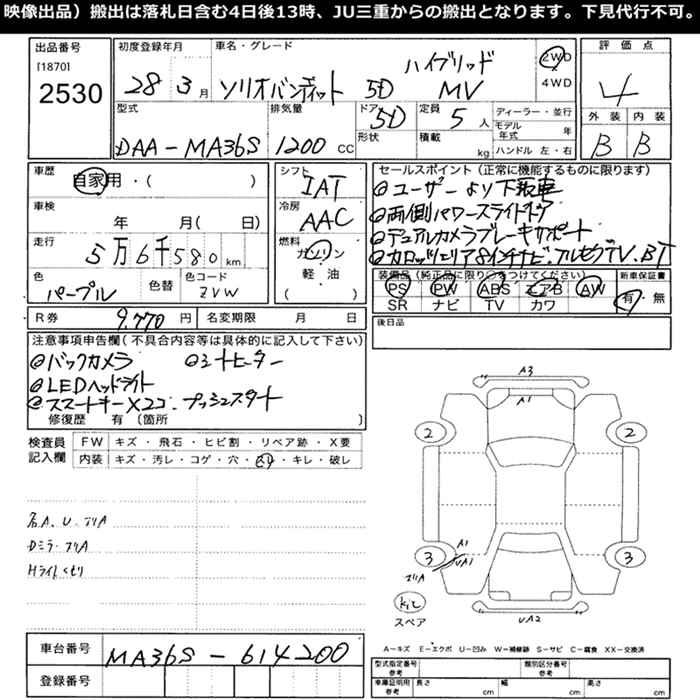 映像出品）搬出は落札日含む4日後13時、JU三重からの搬出となります。下見代行不可。
出品番号
[1870]
2530
初度登録年月
28年 3月
車名・グレード
ソリオバンディット 5D ハイブリッド MV
2WD
4WD
型式
DAA-MA36S
排気量
1200 CC
ドア
5D
形状
定員
5人
積載
kg
ディーラー・並行
モデル年式 年
ハンドル 左・右
評価点
4
外装 内装
B B
車歴
自家用・（ ）
車検
年 月（ 日）
走行
5万6千580km
色
パープル
色替
色コード
ZVW
シフト
IAT
冷房
AAC
燃料
ガソリン
軽油
（ ）
セールスポイント（正常に機能するものに限ります）
◎ユーザーより下取車
◎両側パワースライドドア
◎デュアルカメラブレーキサポート
◎カロッツェリア8インチナビ.フルセグTV.BT
装備品（純正品に限り○をつけてください）
PS PW ABS エアB AW
SR ナビ TV カワ
新車保証書
有・無
R券 9,770円
名変期限 月 日
後日品
注意事項申告欄（不具合内容等は具体的に記入して下さい）
◎バックカメラ ◎シートヒーター
◎LEDヘッドライト
◎スマートキー×2コ.プッシュスタート
修復歴 有（箇所 ）
検査員記入欄
FW キズ・飛石・ヒビ割・リペア跡・X要
内装 キズ・汚レ・コゲ・穴・スレ・キレ・破レ
A.U.コリA
DミラーコリA
Hライトくもり
A3
A1
2
2
3
3
A1
UA1
コリA
UA2
スペア
A－キズ E－エクボ U－凹み W－補修跡 S－サビ C－腐食 XX－交換済
車台番号
MA36S-614200
登録番号
型式指定番号 参考
類別区分番号 参考
車庫証明用 参考
長さ cm
幅 cm
高さ cm